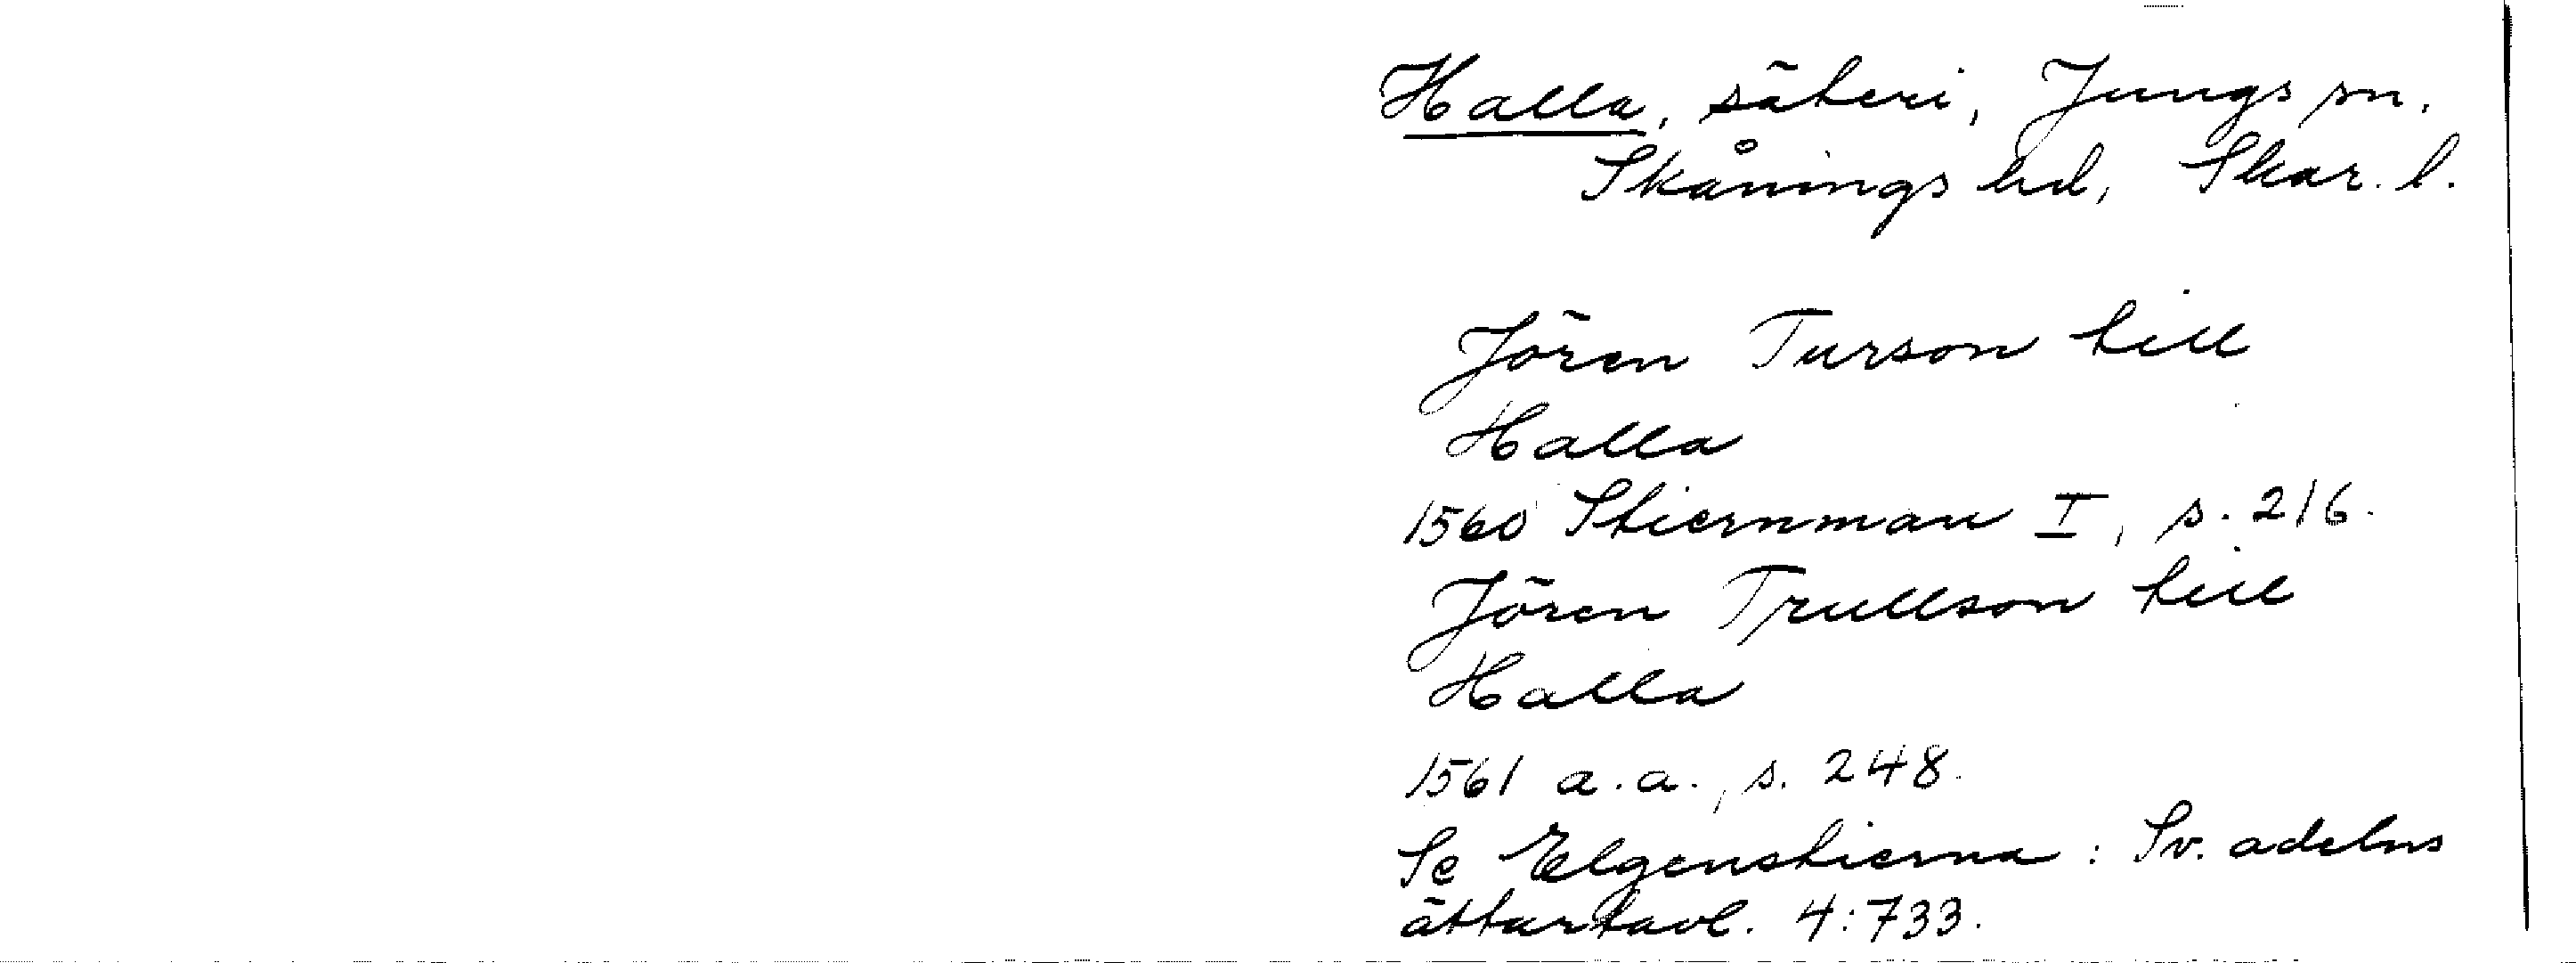 Halla, säteri, Jungs sn.
Skånings hd, Skar. l.
Jören Turson till
Halla
1560 Stiernman I, s. 216.
Jören Trullson till
Halla
1561 a.a., s. 248.
Se Elgenstierna: Sv. adelns
ättartavl. 4:733.